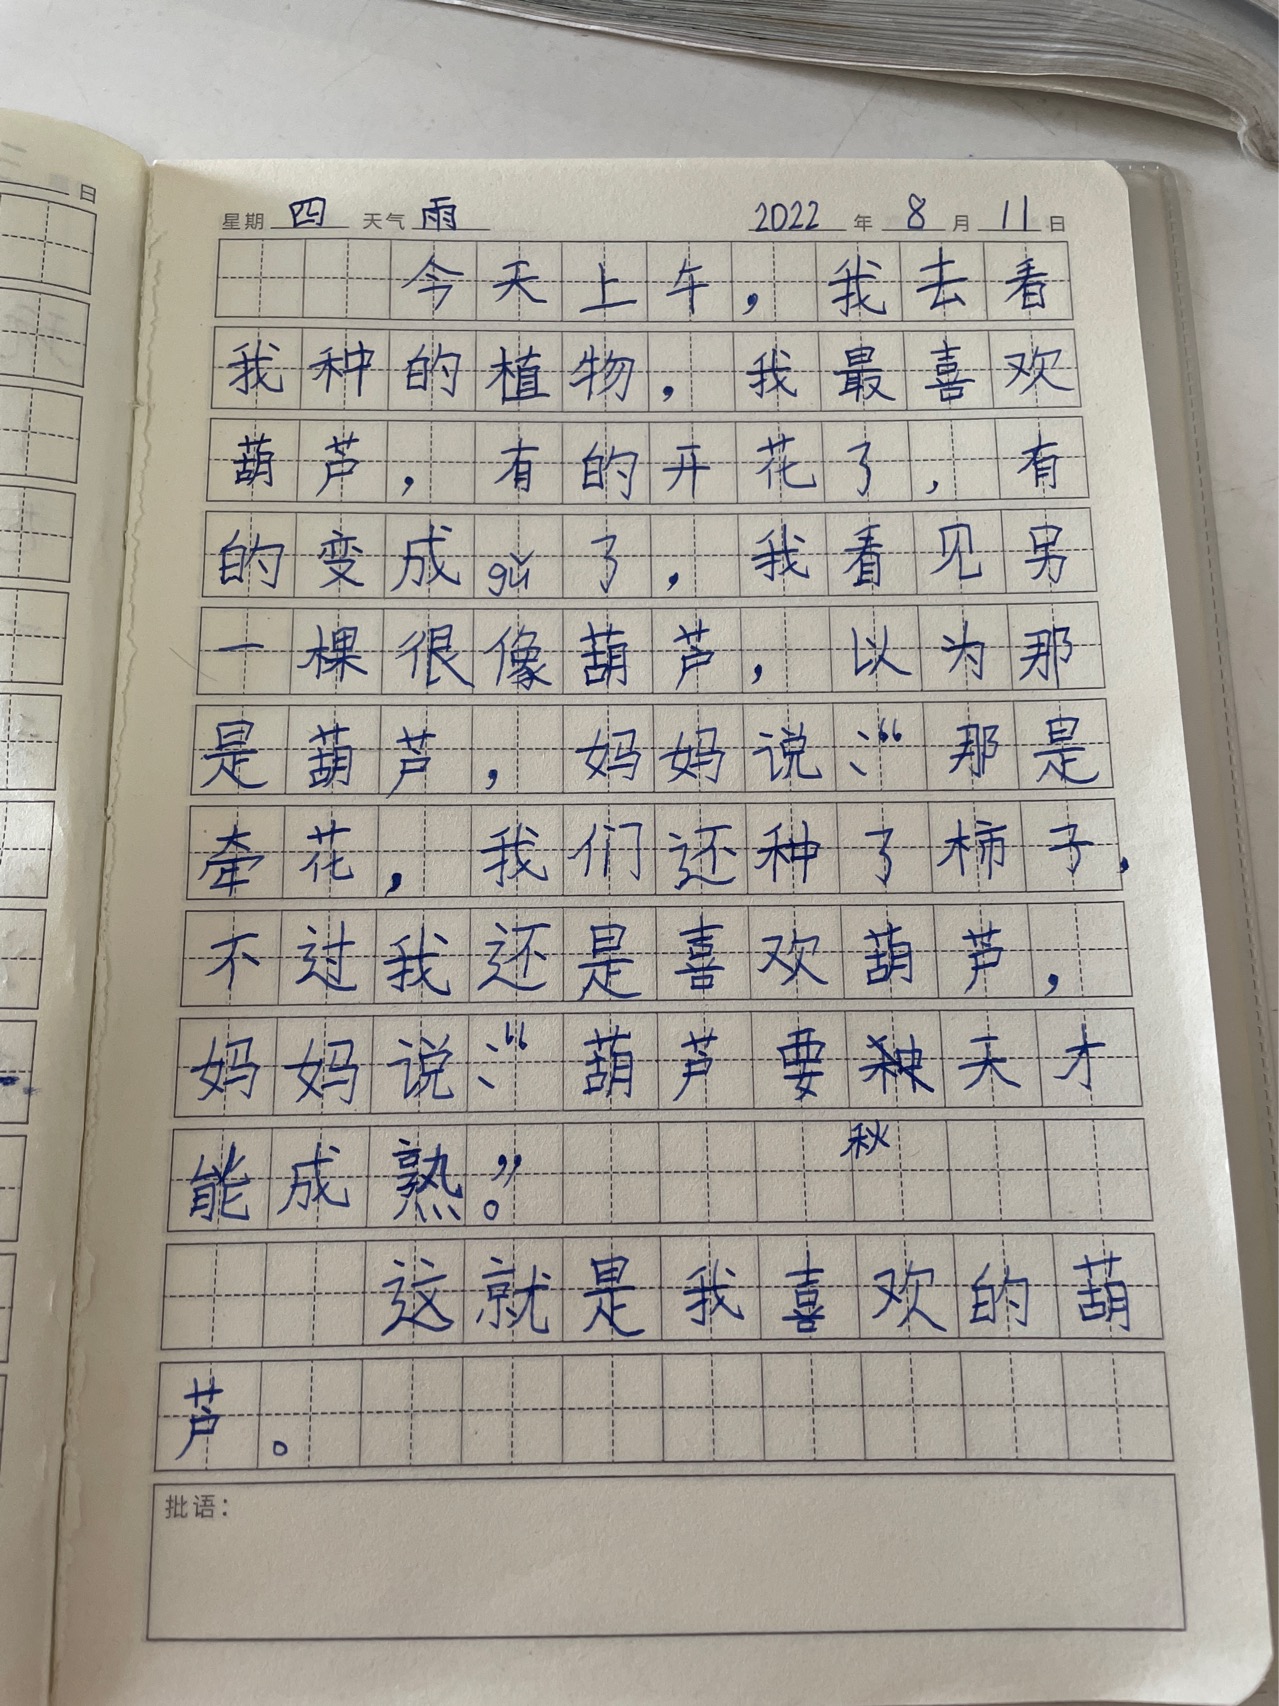 星期 四 天气 雨 2022 年 8 月 11 日
今天上午，我去看
我种的植物，我最喜欢
葫芦，有的开花了，有
的变成gǔ了，我看见另
一棵很像葫芦，以为那
是葫芦，妈妈说：“那是
牵花，我们还种了柿子，
不过我还是喜欢葫芦，
妈妈说：“葫芦要天才
秋
能成熟。”
这就是我喜欢的葫
芦。
批语：
日